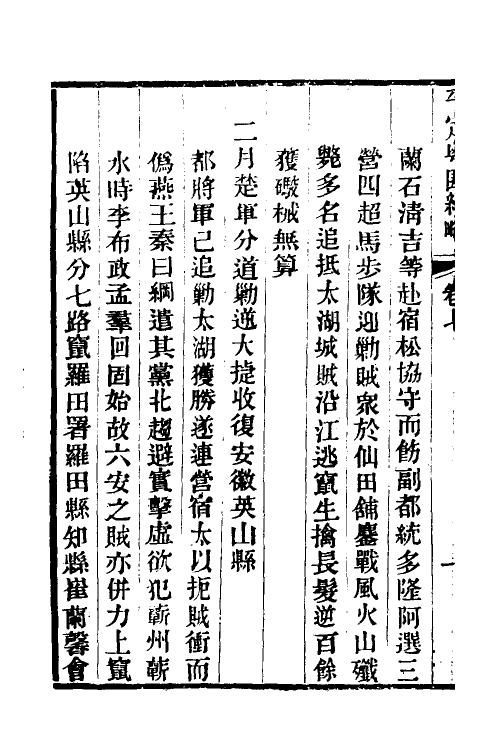 蘭石清吉等赴宿松協守而飭副都統多隆阿選三
營四起馬步隊迎勦賊衆於仙田舖鏖戰風火山殲
斃多名追抵太湖城賊沿江逃竄生擒長髮逆百餘
獲礟械無算
二月楚軍分道勦逆大捷收復安徽英山縣
都將軍已追勦太湖獲勝遂連營宿太以扼賊衝而
僞燕王秦曰綱遣其黨北趨避實擊虛欲犯蘄州蘄
水時李布政孟羣回固始故六安之賊亦併力上竄
陷英山縣分七路竄羅田署羅田縣知縣崔蘭馨會